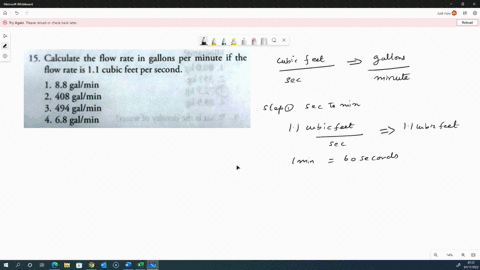 Microsoft Whiteboard
Reload
15. Calculate the flow rate in gallons per minute if the
flow rate is 1.1 cubic feet per second.
1. 8.8 gal/min
2. 408 gal/min
3. 494 gal/min
4. 6.8 gal/min
cubic feet ⇒ gallons
sec minute
step① sec to min
1.1 cubic feet => 1.1 cubic feet
sec
1 min = 60 seconds